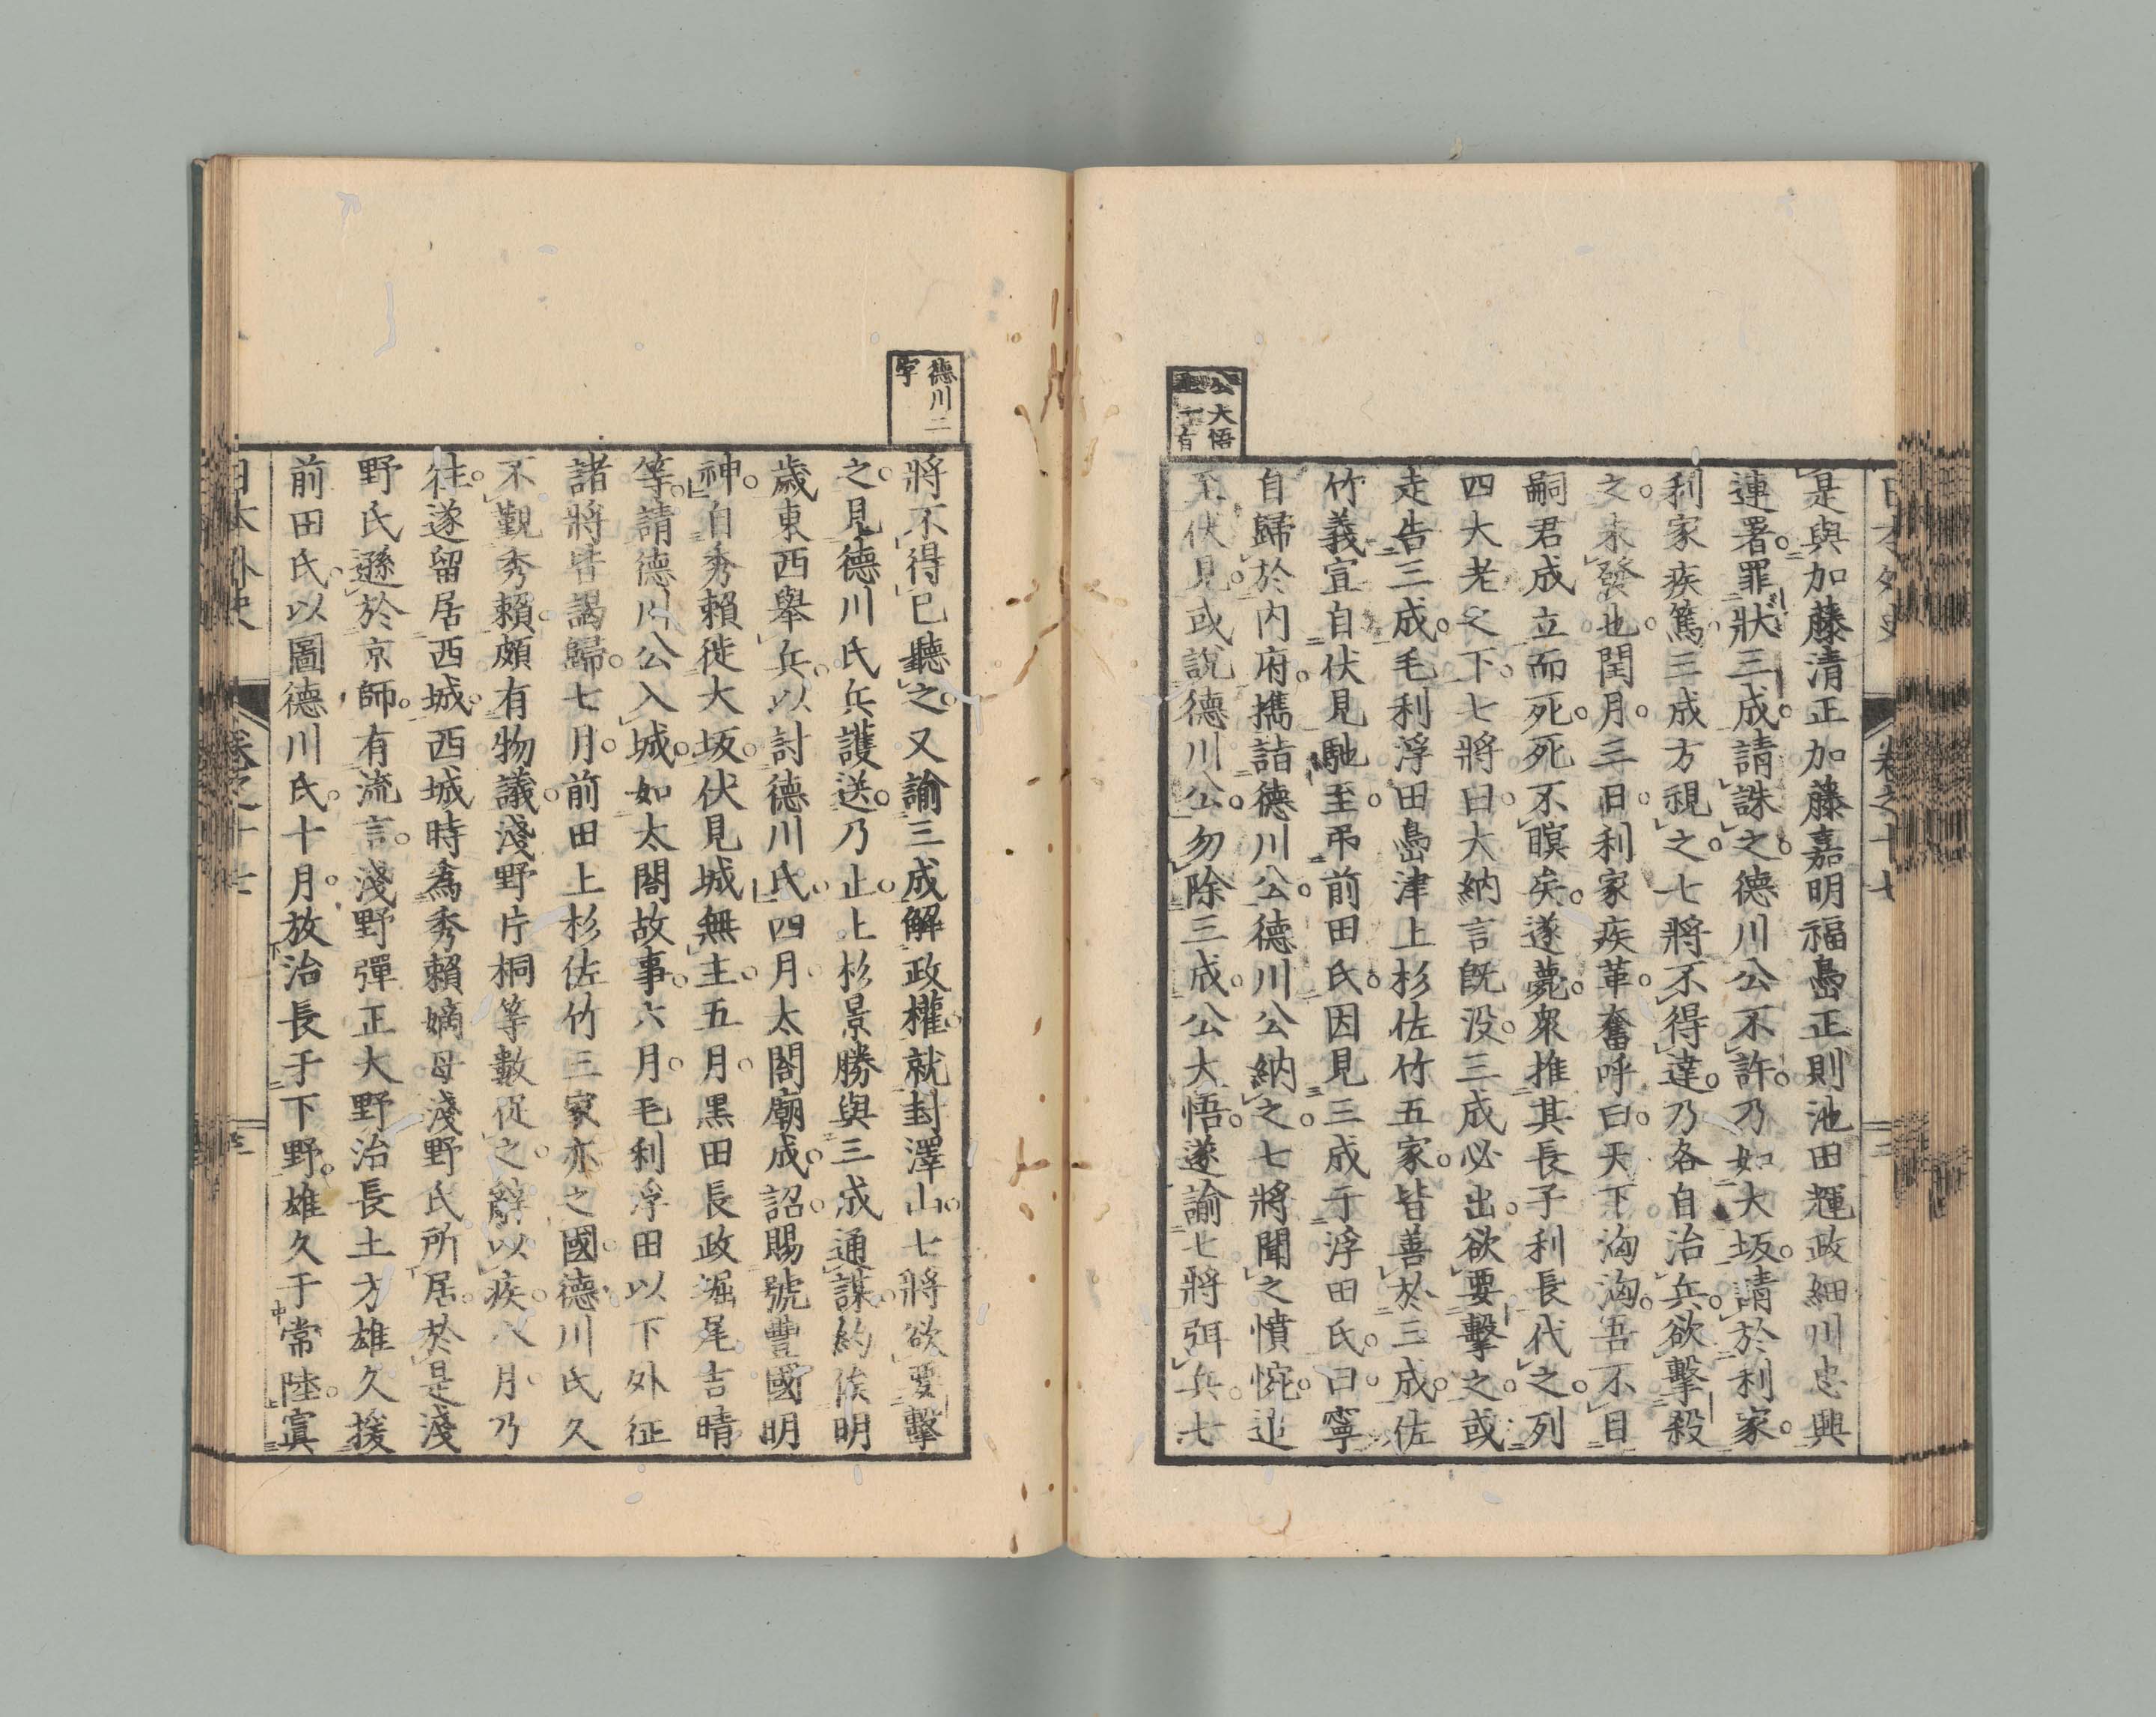 日本外史
卷之十七
是與加藤清正加藤嘉明福島正則池田輝政細川忠興
連署罪狀三成請誅之德川公不許乃如大坂請於利家
利家疾篤三成方視之七將不得達乃各自治兵欲擊殺
之未發也閏月三日利家疾革奮呼曰天下洶洶吾不目
嗣君成立而死死不瞑矣遂薨衆推其長子利長代之列
四大老之下七將曰大納言既沒三成必出欲要擊之或
走告三成毛利浮田島津上杉佐竹五家皆善於三成佐
竹義宣自伏見馳至弔前田氏因見三成于浮田氏曰寧
自歸於內府攜詣德川公德川公納之七將聞之憤惋追
至伏見或說德川公勿除三成公大悟遂諭七將弭兵七
公大悟
有
將不得已聽之又諭三成解政權就封澤山七將欲要擊
之見德川氏兵護送乃止上杉景勝與三成通謀約俟明
歲東西舉兵以討德川氏四月太閤廟成詔賜號豐國明
神自秀賴徙大坂伏見城無主五月黑田長政堀尾吉晴
等請德川公入城如太閤故事六月毛利浮田以下外征
諸將皆謁歸七月前田上杉佐竹三家亦之國德川氏久
不覲秀賴頗有物議淺野片桐等數促之辭以疾八月乃
往遂留居西城西城時爲秀賴嫡母淺野氏所居於是淺
野氏遜於京師有流言淺野彈正大野治長土方雄久援
前田氏以圖德川氏十月放治長于下野雄久于常陸寘
德川二
字
日本外史
卷之十七